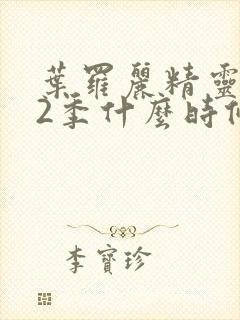 葉羅麗精靈
2季什麼時候
李寶珍